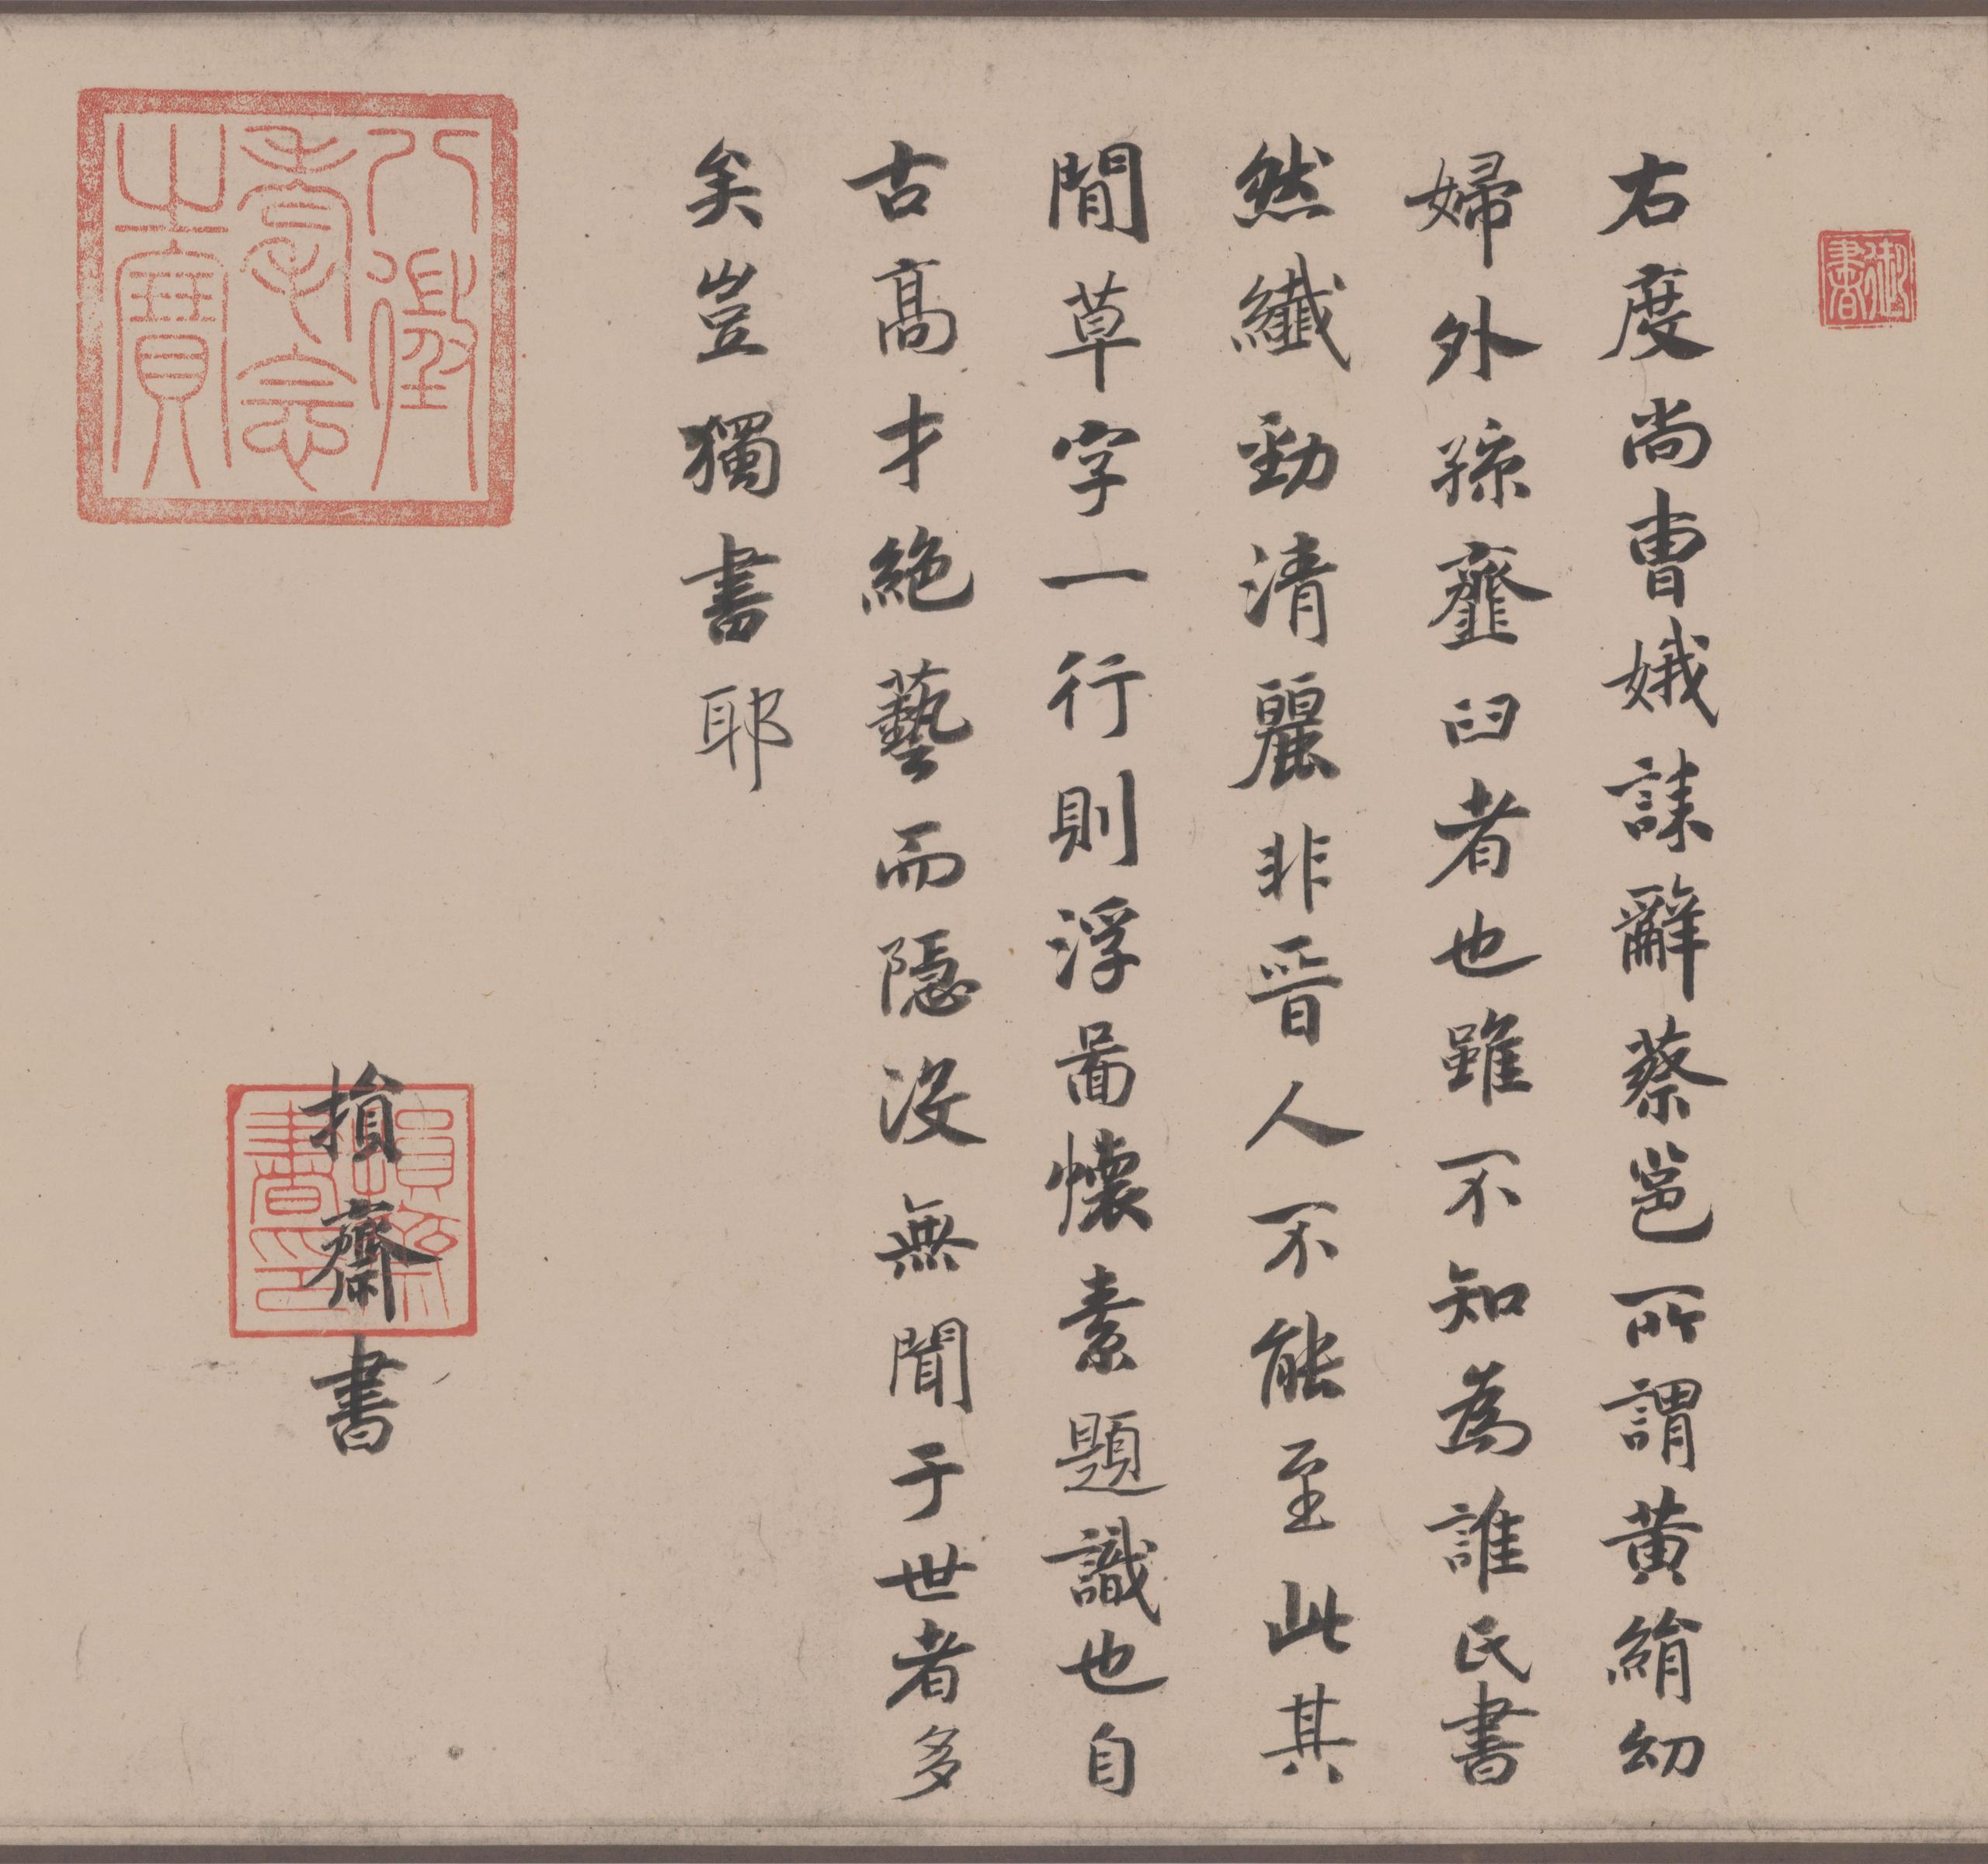 御書
右度尚曹娥誄辭蔡邕所謂黃絹幼
婦外孫韲臼者也雖不知為誰氏書
然纖勁清麗非晉人不能至此其
閒草字一行則浮啚懷素題識也自
古高才絕藝而隱沒無聞于世者多
矣豈獨書耶
八徵耄念之寶
損齋書
損齋書印